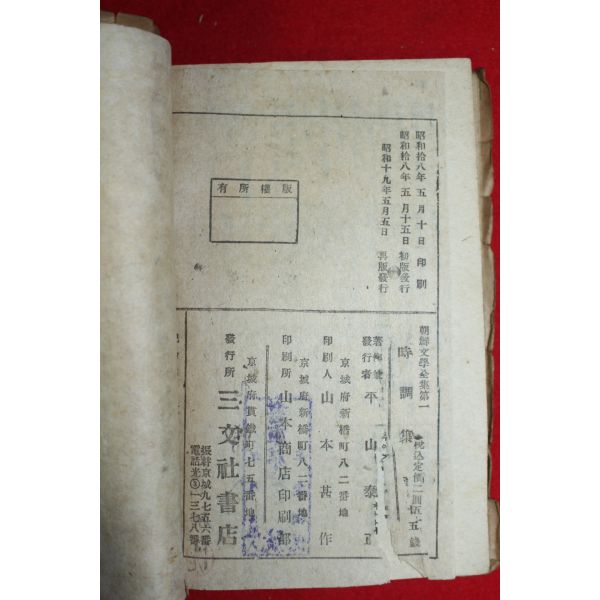 昭和拾八年五月十日印刷
昭和拾八年五月十五日初版發行
昭和十九年五月五日再版發行
版權所有
朝鮮文學全集第一
時調集
發行者 平山泰正
京城府新橋町八二番地
印刷人 山本甚作
京城府新橋町八二番地
印刷所 山本商店印刷部
京城府貫鐵町七五番地
發行所 三文社書店
振替京城九七五六番
電話光③一三七八番